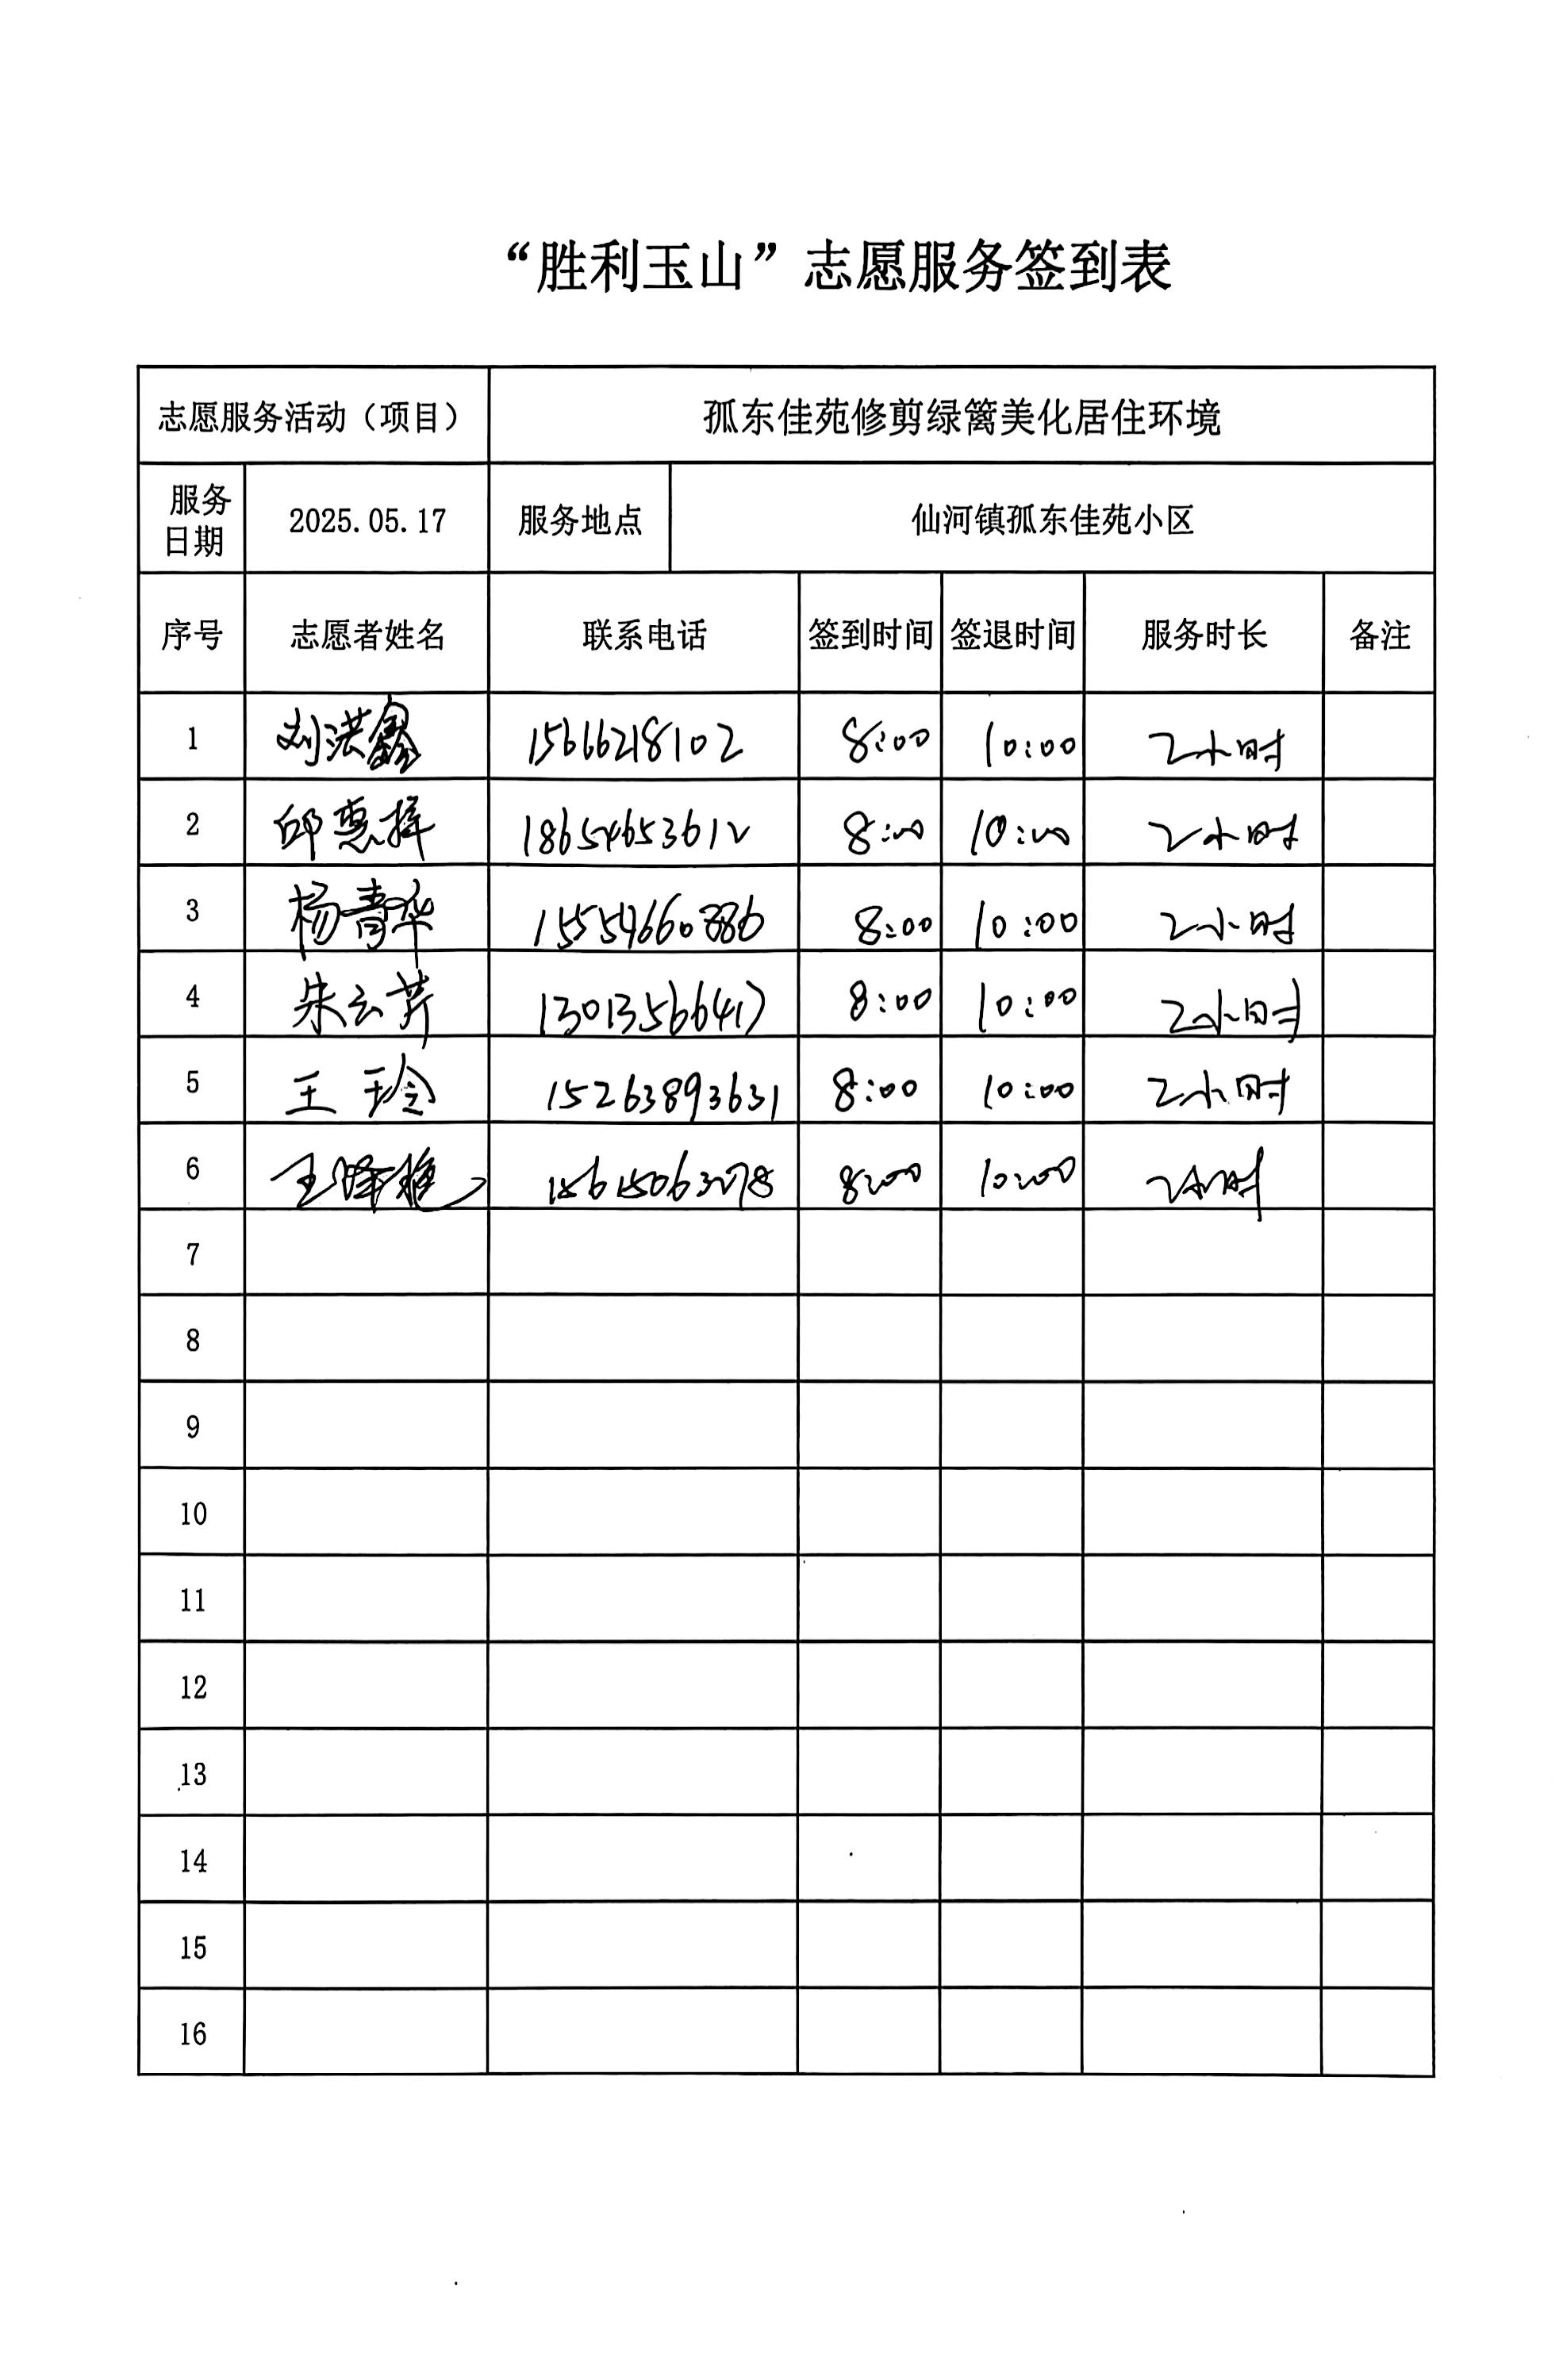 “胜利玉山”志愿服务签到表
志愿服务活动（项目） 孤东佳苑修剪绿篱美化居住环境
服务日期 2025.05.17 服务地点 仙河镇孤东佳苑小区
序号 志愿者姓名 联系电话 签到时间 签退时间 服务时长 备注
1 刘洪鑫 15666218102 8:00 10:00 2小时
2 邱惠 18654653612 8:00 10:00 2小时
3 杨青华 15554660886 8:00 10:00 2小时
4 朱云芹 13013566417 8:00 10:00 2小时
5 王玲 15263893631 8:00 10:00 2小时
6 王 15615063278 8:00 10:00 2小时
7
8
9
10
11
12
13
14
15
16